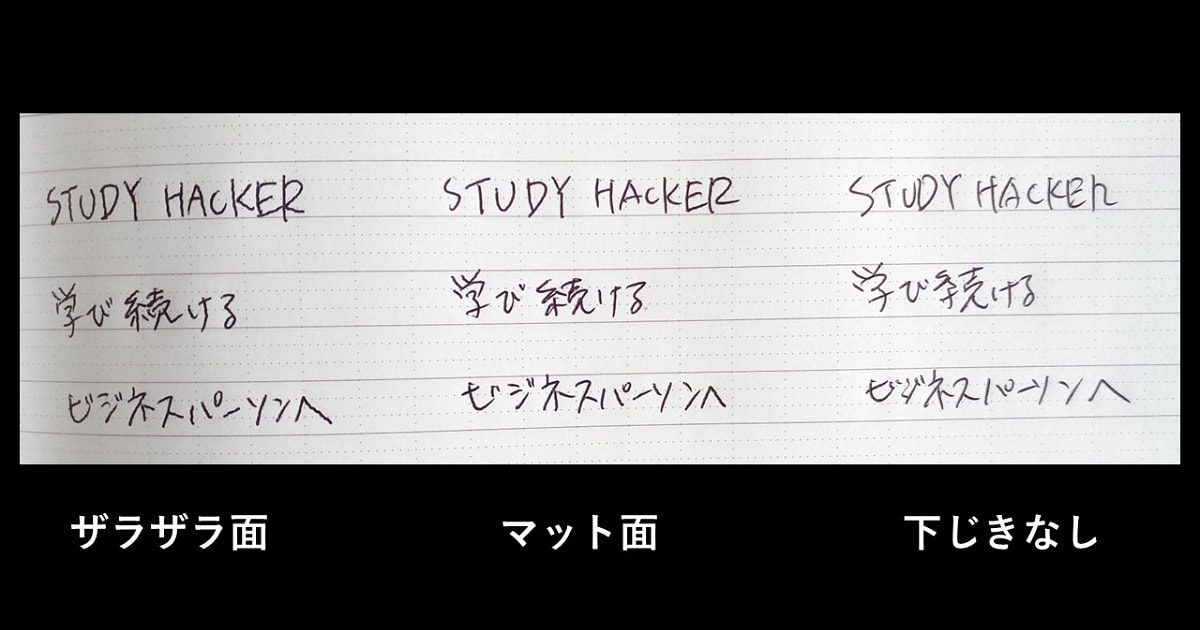 STUDY HACKER STUDY HACKER STUDY HACKER
学び続ける 学び続ける 学び続ける
ビジネスパーソンへ ビジネスパーソンへ ビジネスパーソンへ
ザラザラ面 マット面 下じきなし